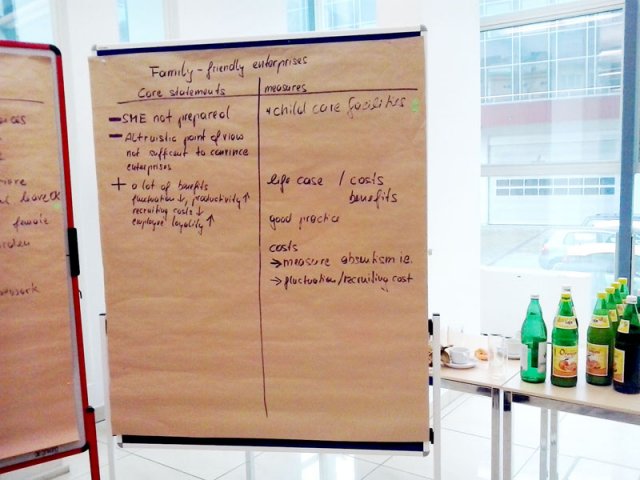 Family-friendly enterprises
Core statements
measures
- SME not prepared
- Altruistic point of view
not sufficent to convince
enterprises
+ a lot of benefits
fluctuation ↓, productivity ↑
recruiting costs ↓
employee loyality ↑
child care facilities
life case / costs
benefits
good practice
costs
→ measure absentism i.e.
→ fluctuation/recruiting cost
female